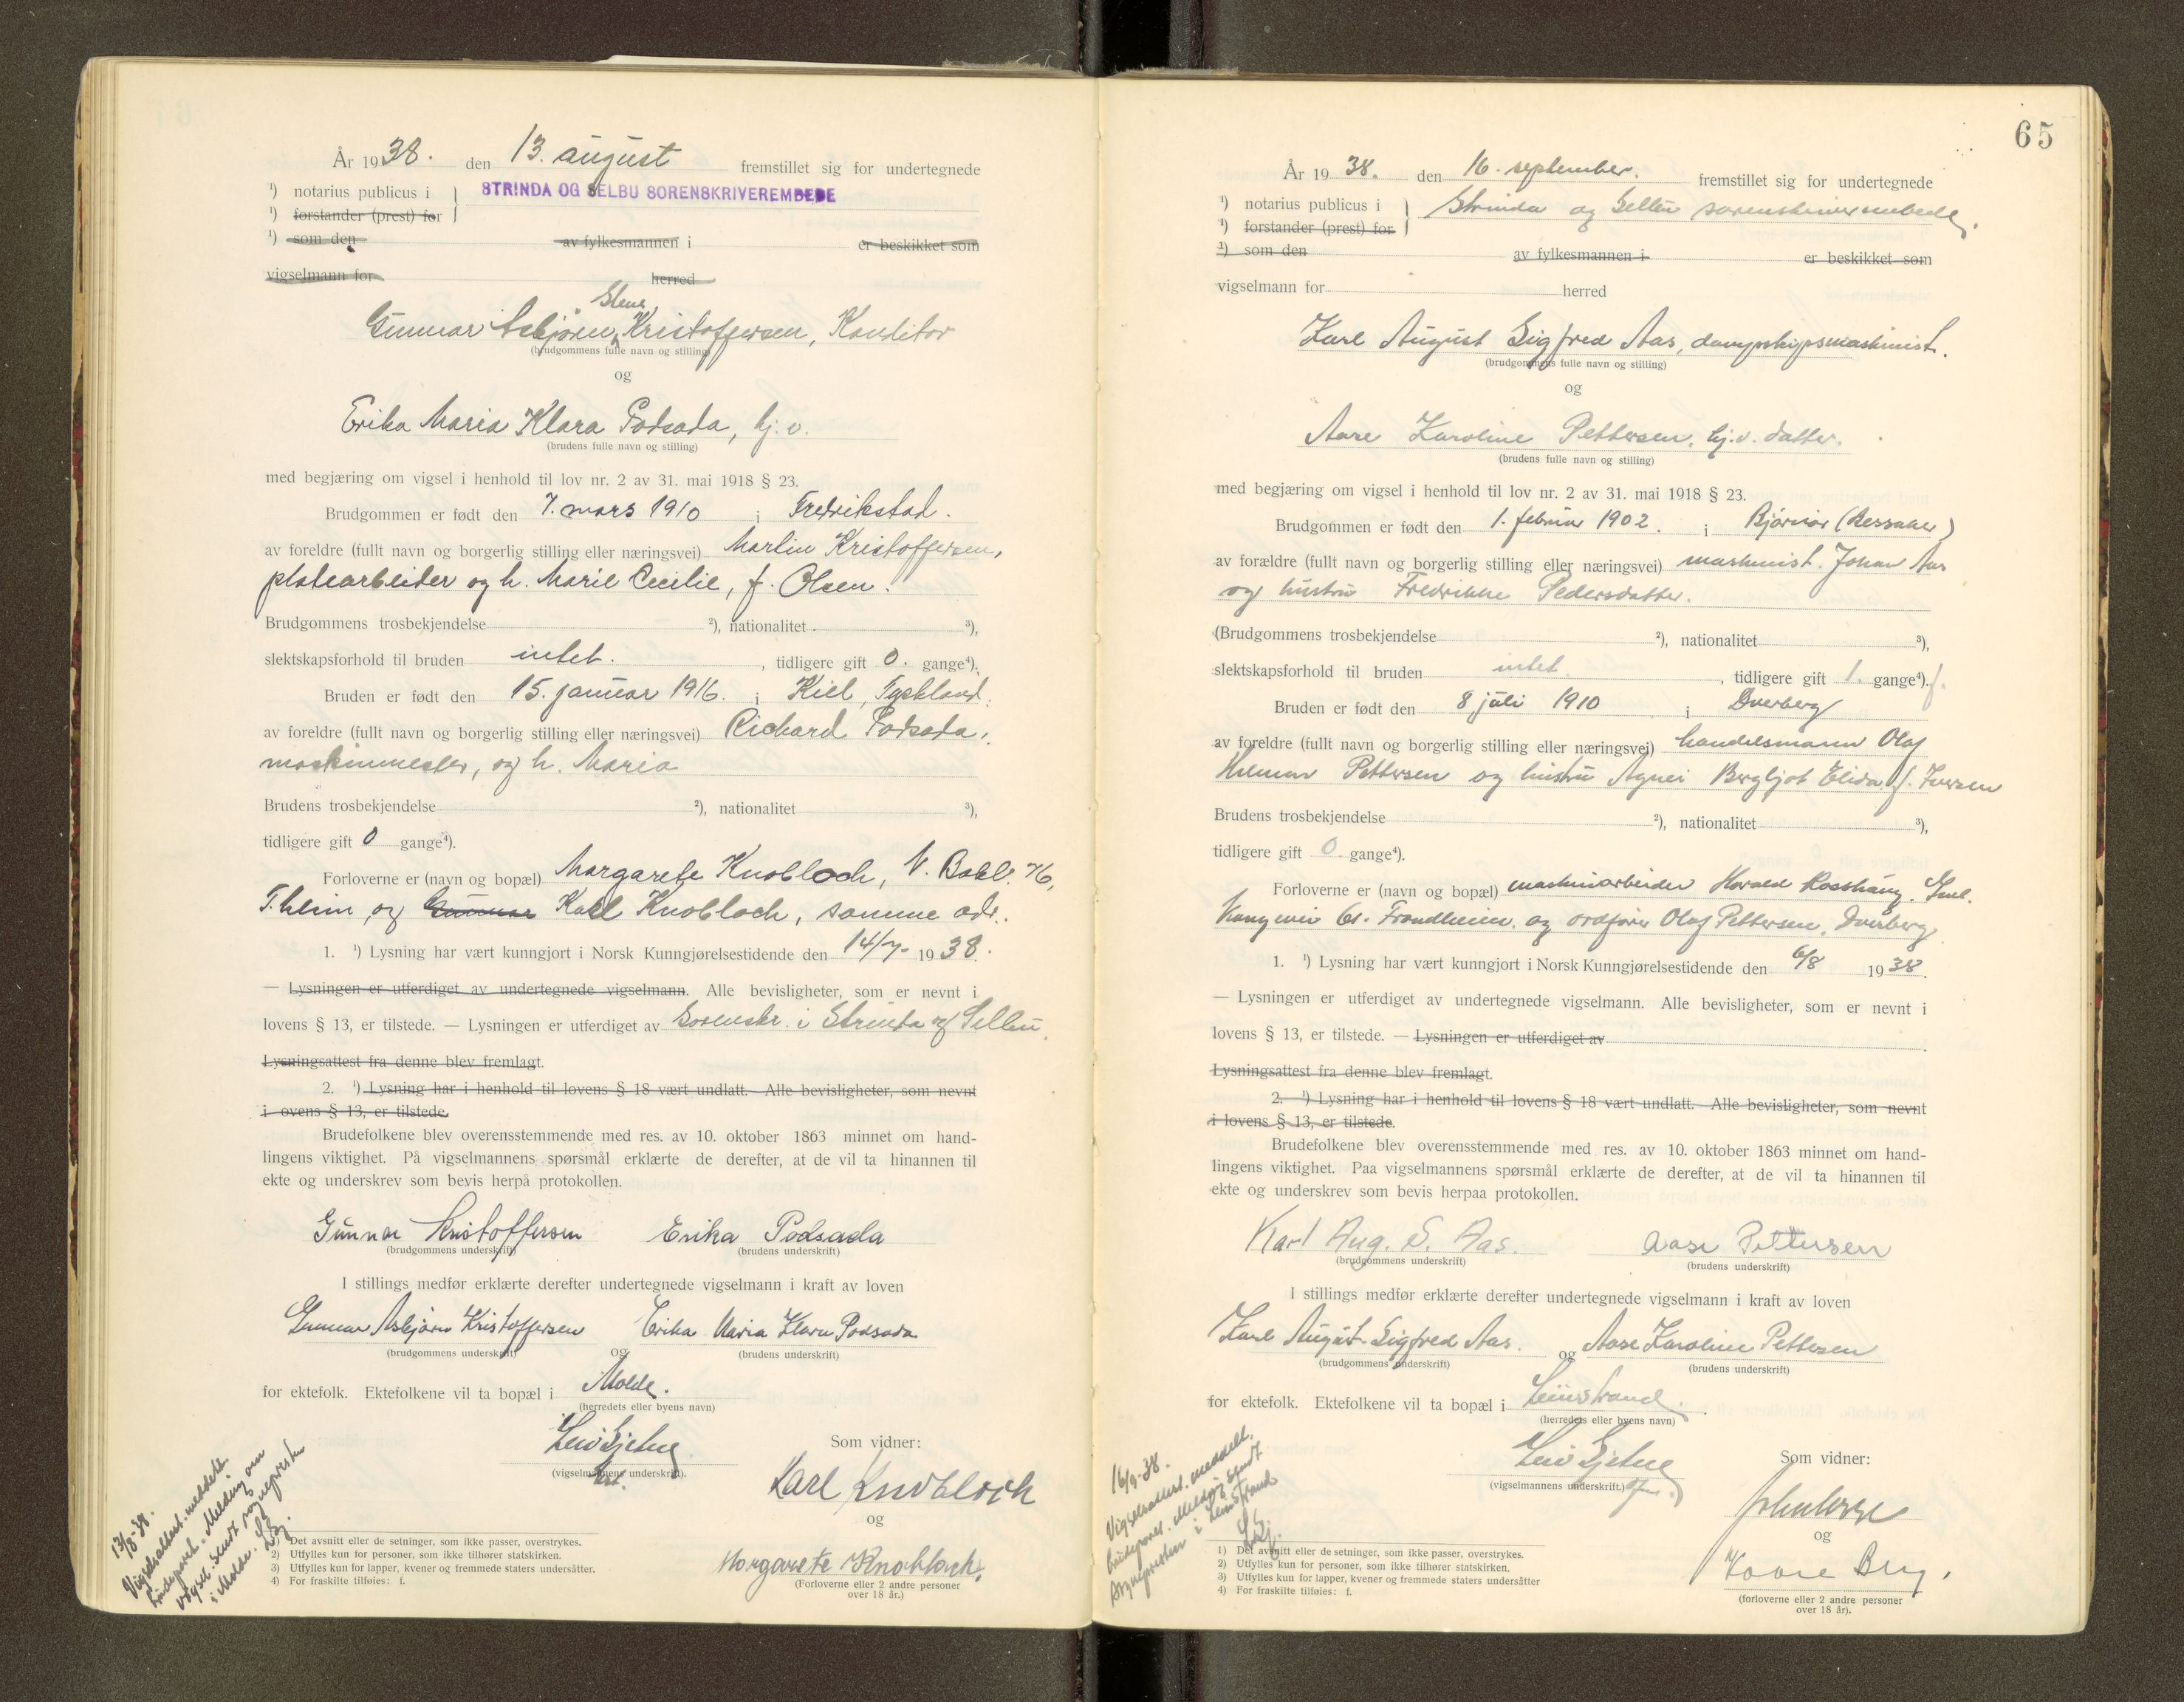 År 1938. den 13. august fremstillet sig for undertegnede
¹) notarius publicus i } STRINDA OG SELBU SORENSKRIVEREMBEDE
¹) forstander (prest) for
¹) som den av fylkesmannen i er beskikket som
vigselmann for herred
Stene
Gunnar Asbjørn Kristoffersen, Konditor
(brudgommens fulle navn og stilling)
og
Erika Maria Klara Podsada, hj. v.
(brudens fulle navn og stilling)
med begjæring om vigsel i henhold til lov nr. 2 av 31. mai 1918 § 23.
Brudgommen er født den 7. mars 1910 i Fredrikstad.
av foreldre (fullt navn og borgerlig stilling eller næringsvei) Martin Kristoffersen,
platearbeider og h. Marie Cecilie, f. Olsen.
Brudgommens trosbekjendelse ²), nationalitet ³),
slektskapsforhold til bruden intet. , tidligere gift 0. gange⁴).
Bruden er født den 15. januar 1916. i Kiel, Tyskland.
av foreldre (fullt navn og borgerlig stilling eller næringsvei) Richard Podsada,
maskinmester, og h. Maria
Brudens trosbekjendelse ²), nationalitet ³),
tidligere gift 0 gange⁴).
Forloverne er (navn og bopæl) Margarete Knobloch, N. Bakl. 76,
T.heim, og Gunnar Karl Knobloch, samme adr.
1. ¹) Lysning har vært kunngjort i Norsk Kunngjørelsestidende den 14/7- 1938.
— Lysningen er utferdiget av undertegnede vigselmann. Alle bevisligheter, som er nevnt i
lovens § 13, er tilstede. — Lysningen er utferdiget av Sorenskr. i Strinda og Selbu.
Lysningsattest fra denne blev fremlagt.
2. ¹) Lysning har i henhold til lovens § 18 vært undlatt. Alle bevisligheter, som nevnt
i ovens § 13, er tilstede.
Brudefolkene blev overensstemmende med res. av 10. oktober 1863 minnet om hand-
lingens viktighet. På vigselmannens spørsmål erklærte de derefter, at de vil ta hinannen til
ekte og underskrev som bevis herpå protokollen.
Gunnar Kristoffersen Erika Podsada
(brudgommens underskrift) (brudens underskrift)
I stillings medfør erklærte derefter undertegnede vigselmann i kraft av loven
Gunnar Asbjørn Kristoffersen Erika Maria Klara Podsada
(brudgommens underskrift) og (brudens underskrift)
for ektefolk. Ektefolkene vil ta bopæl i Molde.
(herredets eller byens navn)
Leiv Gjelvg Som vidner:
(vigselmannens underskrift).
Karl Knobloch
og
Margarete Knobloch.
(Forloverne eller 2 andre personer
over 18 år.)
13/8-38.
Vigselsattest meddelt
brudeparet. Melding om
vigsel sendt sognepresten
i Molde. LGj.
1) Det avsnitt eller de setninger, som ikke passer, overstrykes.
2) Utfylles kun for personer, som ikke tilhører statskirken.
3) Utfylles kun for lapper, kvener og fremmede staters undersåtter.
4) For fraskilte tilføies: f.
65
År 1938. den 16. september. fremstillet sig for undertegnede
¹) notarius publicus i } Strinda og Selbu sorenskriverembede.
¹) forstander (prest) for
¹) som den av fylkesmannen i er beskikket som
vigselmann for herred
Karl August Sigfred Aas, dampskipsmaskinist.
(brudgommens fulle navn og stilling)
og
Aase Karoline Pettersen. hj.v. datter.
(brudens fulle navn og stilling)
med begjæring om vigsel i henhold til lov nr. 2 av 31. mai 1918 § 23.
Brudgommen er født den 1. februar 1902. i Bjørnør (Bessaker)
av forældre (fullt navn og borgerlig stilling eller næringsvei) maskinist. Johan Aas
og hustru Fredrikke Pedersdatter.
(Brudgommens trosbekjendelse ²), nationalitet ³),
slektskapsforhold til bruden intet. , tidligere gift 1. gange⁴). f.
Bruden er født den 8 juli 1910 i Dverberg
av foreldre (fullt navn og borgerlig stilling eller næringsvei) handelsmann Olaf
Hilmar Pettersen og hustru Agnes Bergljot Elida f. Iversen
Brudens trosbekjendelse ²), nationalitet ³),
tidligere gift 0 gange⁴).
Forloverne er (navn og bopæl) maskinarbeider Harald Rosshaug. Gml.
Kongevei 61. Trondheim. og ordfører Olaf Pettersen. Dverberg
1. ¹) Lysning har vært kunngjort i Norsk Kunngjørelsestidende den 6/8 1938.
— Lysningen er utferdiget av undertegnede vigselmann. Alle bevisligheter, som er nevnt i
lovens § 13, er tilstede. — Lysningen er utferdiget av
Lysningsattest fra denne blev fremlagt.
2. ¹) Lysning har i henhold til lovens § 18 vært undlatt. Alle bevisligheter, som nevnt
i lovens § 13, er tilstede.
Brudefolkene blev overensstemmende med res. av 10. oktober 1863 minnet om hand-
lingens viktighet. Paa vigselmannens spørsmål erklærte de derefter, at de vil ta hinannen til
ekte og underskrev som bevis herpaa protokollen.
Karl Aug. S. Aas. Aase Pettersen
(brudgommens underskrift) (brudens underskrift)
I stillings medfør erklærte derefter undertegnede vigselmann i kraft av loven
Karl August Sigfred Aas. og Aase Karoline Pettersen
(brudgommens underskrift) (brudens underskrift)
for ektefolk. Ektefolkene vil ta bopæl i Leinstrand.
(herredets eller byens navn)
Leiv Gjelvg Som vidner:
(vigselmannens underskrift.)
og
Kaare Berg.
(forloverne eller 2 andre personer
over 18 år).
16/9-38.
Vigselsattest. meddelt.
brudeparet. Melding sendt
sognepresten i Leinstrand
LGj.
1) Det avsnitt eller de setninger, som ikke passer, overstrykes.
2) Utfylles kun for personer, som ikke tilhører statskirken.
3) Utfylles kun for lapper, kvener og fremmede staters undersåtter
4) For fraskilte tilføies: f.